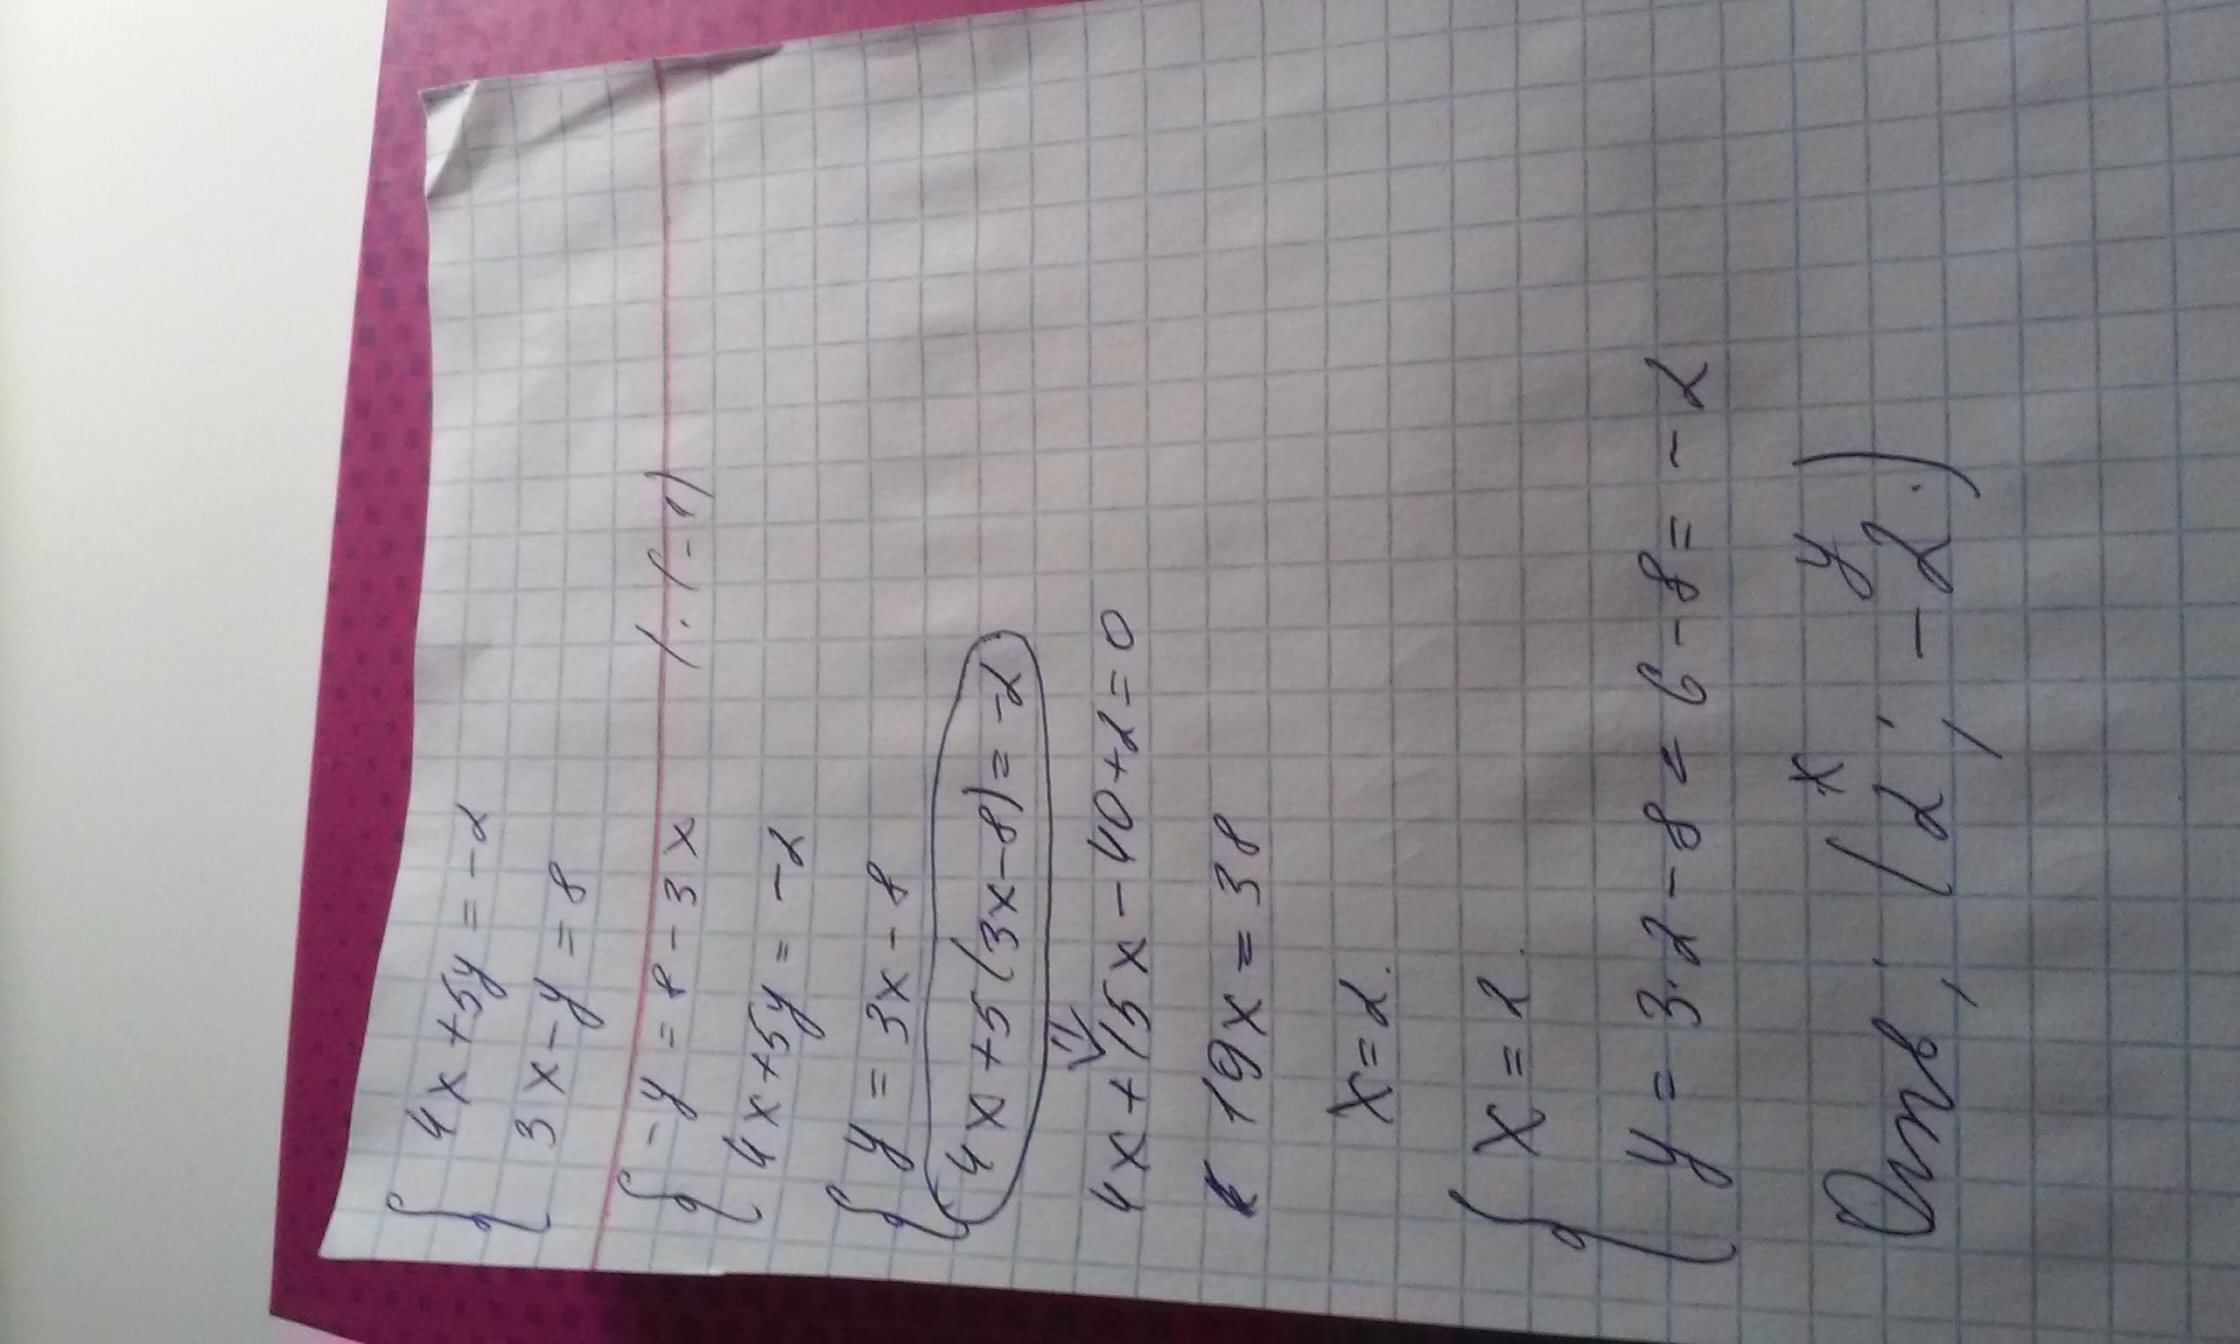 { 4x+5y=-2
3x-y=8
{ -y=8-3x /·(-1)
4x+5y=-2
{ y=3x-8
4x+5(3x-8)=-2
4x+15x-40+2=0
19x=38
x=2.
{ x=2.
y=3·2-8=6-8=-2
x y
Отв; (2; -2.)